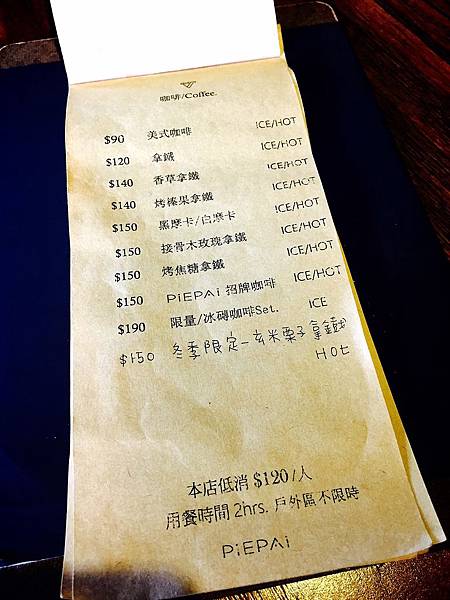 咖啡/Coffee.
$90 美式咖啡 ICE/HOT
$120 拿鐵 ICE/HOT
$140 香草拿鐵 ICE/HOT
$140 烤榛果拿鐵 ICE/HOT
$150 黑摩卡/白摩卡 ICE/HOT
$150 接骨木玫瑰拿鐵 ICE/HOT
$150 烤焦糖拿鐵 ICE/HOT
$150 PiEPAi 招牌咖啡 ICE/HOT
$190 限量/冰磚咖啡Set. ICE
$150 冬季限定-玄米栗子拿鐵
HOt
本店低消 $120/人
用餐時間 2hrs. 戶外區不限時
PiEPAi